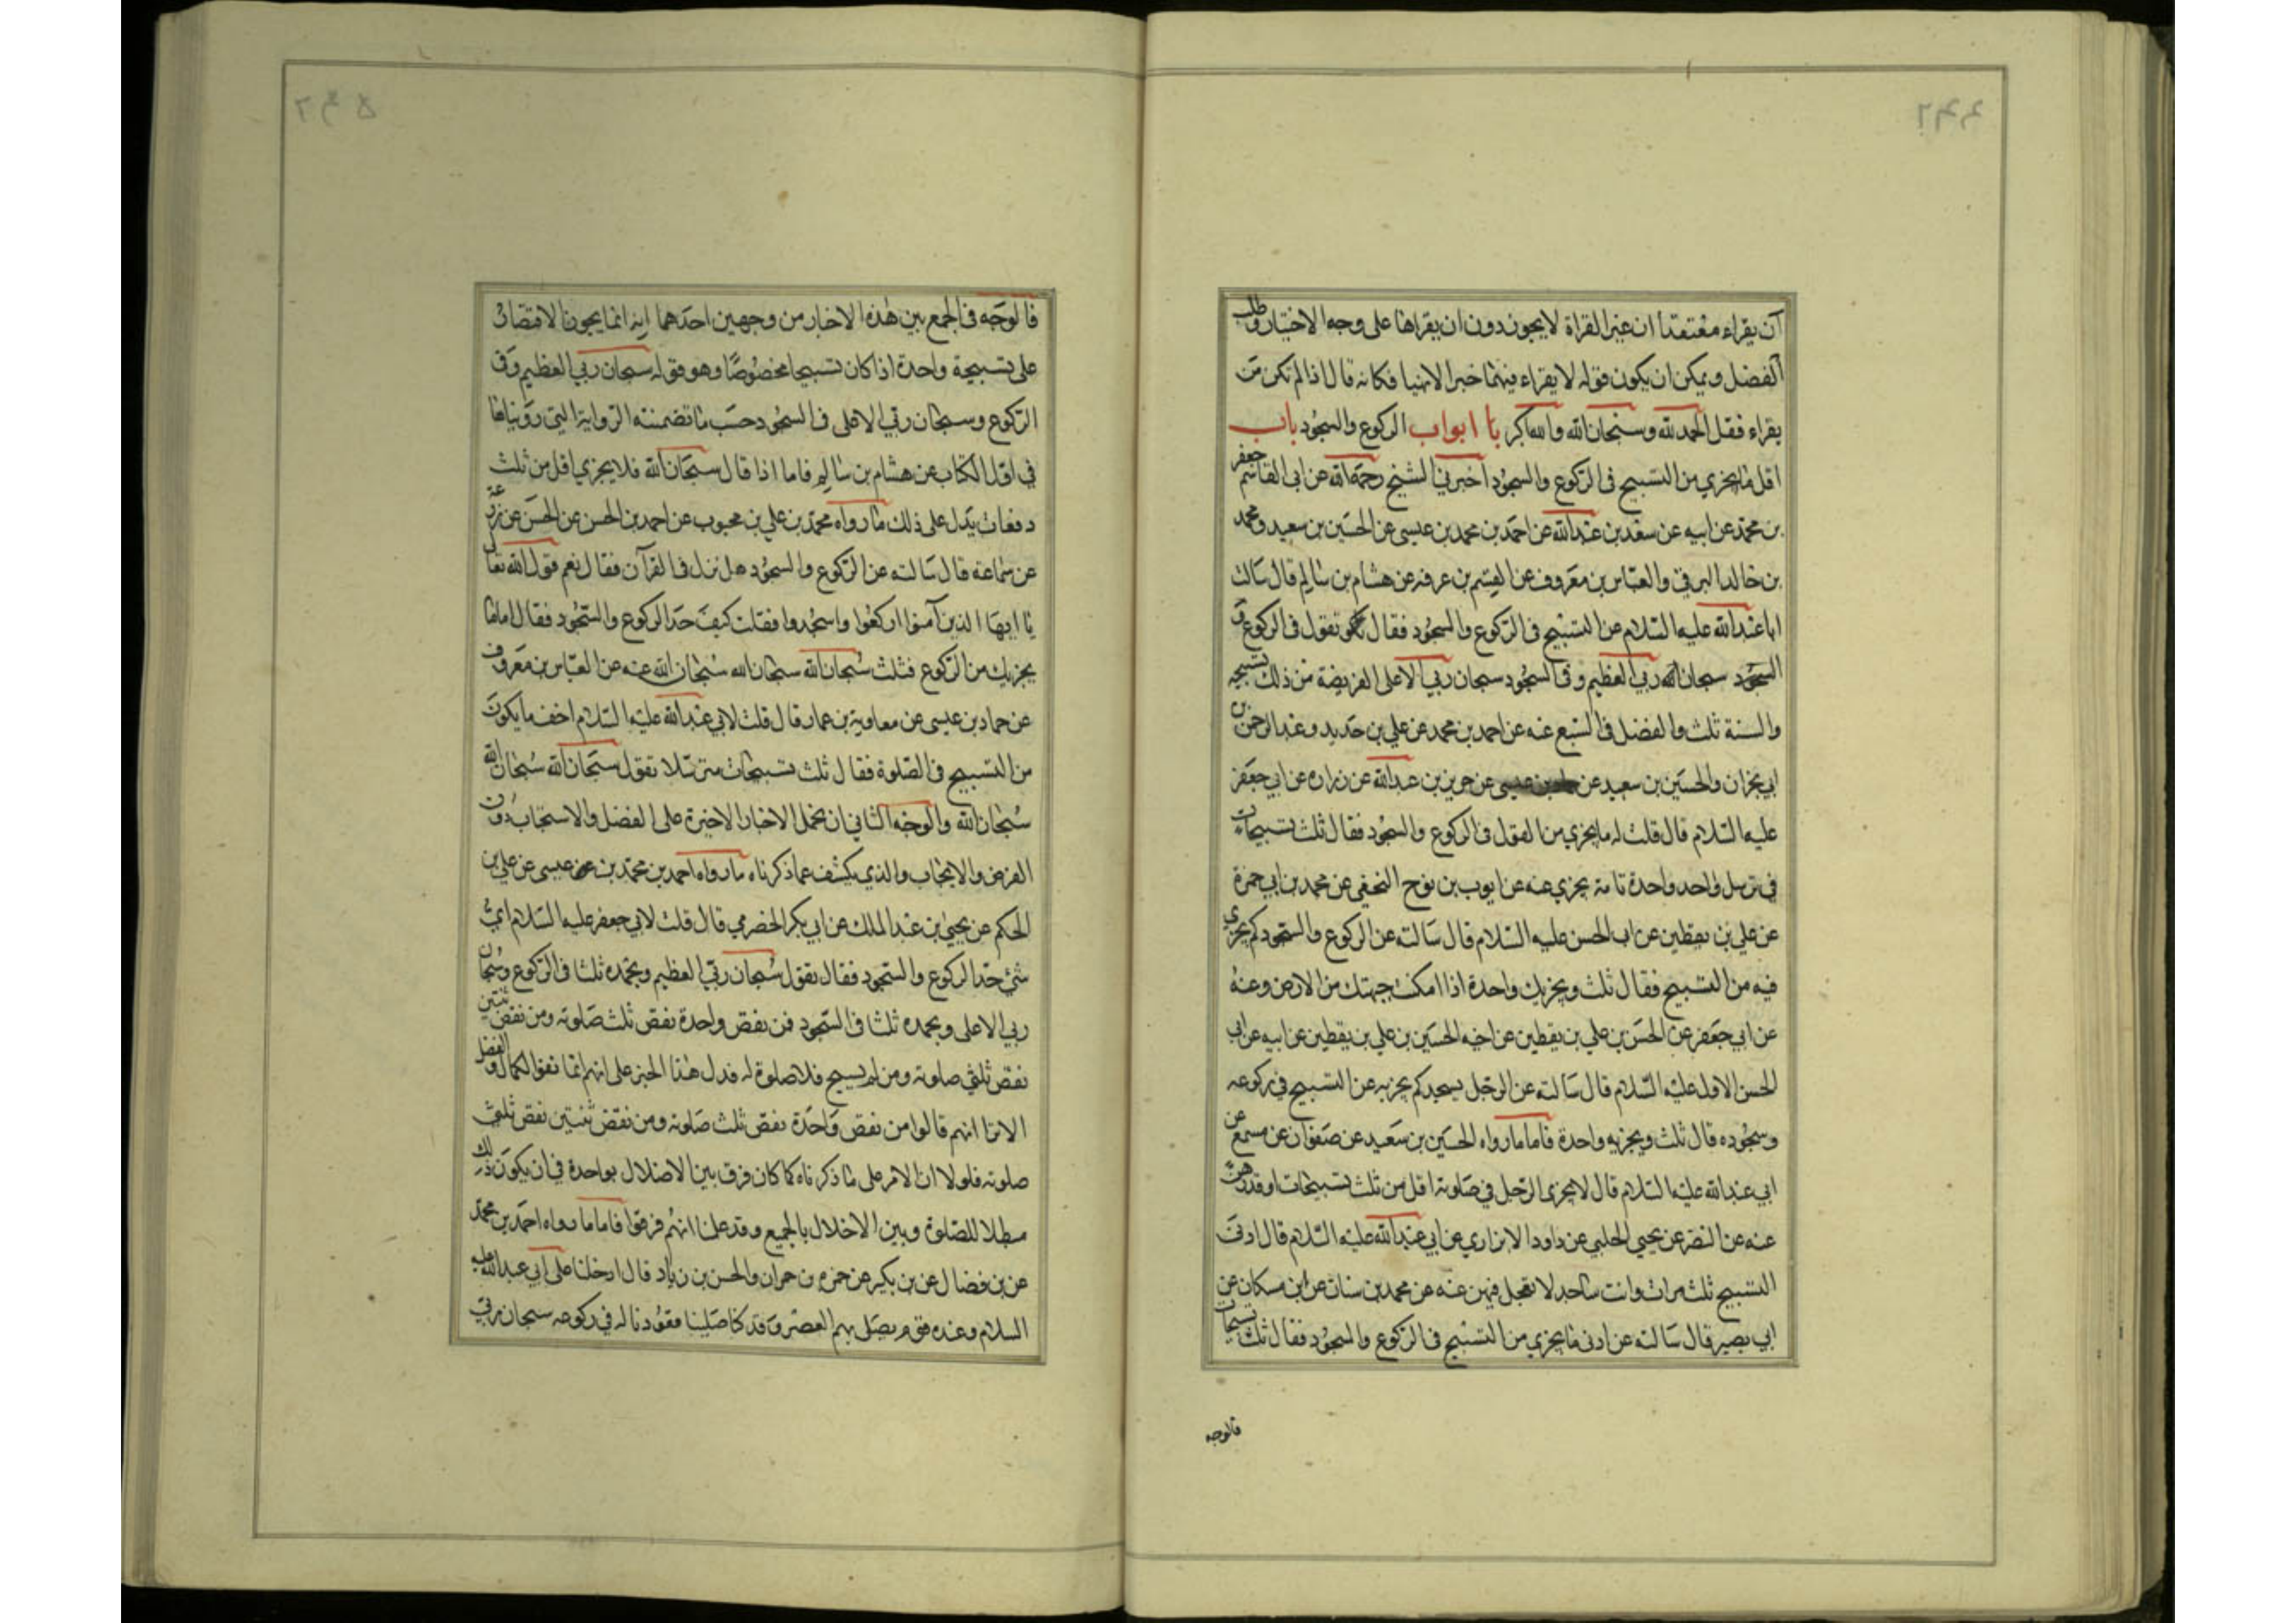 ان يقراء معتقدا ان غير القراة لا يجوز دون ان يقراها على وجه الاختيار وطلب
الفضل ويمكن ان يكون قوله لا يقراء فيهما خبرا لا نهيا فكانه قال اذا لم تكن من
يقراء فقل الحمد لله وسبحان الله والله اكبر ابواب الركوع والسجود باب
اقل ما يجزي من التسبيح في الركوع والسجود اخبرني الشيخ رحمة الله عن ابي القاسم جعفر
بن محمد عن ابيه عن سعد بن عبد الله عن احمد بن محمد بن عيسى عن الحسين بن سعيد ومحمد
بن خالد البرقي والعباس بن معروف عن القسم بن عرفه عن هشام بن سالم قال سالت
ابا عبد الله عليه السلام عن التسبيح في الركوع والسجود فقال تقول في الركوع
السجود سبحان الله ربي العظيم وفي السجود سبحان ربي الاعلى الفريضة من ذلك تسبيحه
والسنة ثلث والفضل في السبع عنه عن احمد بن محمد عن علي بن حديد وعبد الرحمن بن
ابي نجران والحسين بن سعيد عن حماد بن عيسى عن حريز بن عبد الله عن زراره عن ابي جعفر
عليه السلام قال قلت له ما يجزي من القول في الركوع والسجود فقال ثلث تسبيحات
في ترسل واحد واحدة تامة يجزي عنه عن ايوب بن نوح النخعي عن محمد بن ابي حمزة
عن علي بن يقطين عن اب الحسن عليه السلام قال سالته عن الركوع والسجود كم يجزي
فيه من التسبيح فقال ثلث ويجزيك واحدة اذا امكنت جبهتك من الارض وعنه
عن ابي جعفر عن الحسن بن علي بن يقطين عن اخيه الحسين بن علي بن يقطين عن ابيه عن ابي
الحسن الاول عليه السلام قال سالته عن الرجل يسجد كم يجزيه من التسبيح في ركوعه
وسجوده قال ثلث ويجزيه واحدة فاما ما رواه الحسين بن سعيد عن صفوان عن مسمع عن
ابي عبد الله عليه السلام قال لا يجزي الرجل في صلوته اقل من ثلث تسبيحات او قدرهن
عنه عن النضر عن يحيى الحلبي عن داود الابزاري عن ابي عبد الله عليه السلام قال ادنى
التسبيح ثلث مرات وانت ساجد لا تعجل فيهن عنه عن محمد بن سنان عن ابن مسكان عن
ابي بصير قال سالته عن ادنى ما يجزي من التسبيح في الركوع والسجود فقال ثلث تسبيحات
فالوجه
فالوجه في الجمع بين هذه الاخبار من وجهين احدهما انه انما يجوز الاقتصار
على تسبيحة واحدة اذا كان تسبيحا مخصوصا وهو قوله سبحان ربي العظيم في
الركوع وسبحان ربي الاعلى في السجود حسب ما تضمنته الرواية التي رويناها
في اول الكتاب عن هشام بن سالم فاما اذا قال سبحان الله فلا يجزي اقل من ثلث
دفعات يدل على ذلك ما رواه محمد بن علي بن محبوب عن احمد بن الحسن عن الحسن عن زرعة
عن سماعة قال سالته عن الركوع والسجود هل نزل في القرآن فقال نعم قول الله تعالى
يا ايها الذين آمنوا اركعوا واسجدوا فقلت كيف حد الركوع والسجود فقال اما ما
يجزيك من الركوع فثلث سبحان الله سبحان الله سبحان الله عنه عن العباس بن معروف
عن حماد بن عيسى عن معاوية بن عمار قال قلت لابي عبد الله عليه السلام اخف ما يكون
من التسبيح في الصلوة فقال ثلث تسبيحات مترسلا تقول سبحان الله سبحان الله
سبحان الله والوجه الثاني ان نحمل الاخبار الاخيرة على الفضل والاستحباب دون
الفرض والايجاب والذي يكشف عما ذكرناه ما رواه احمد بن محمد بن عيسى عن علي بن
الحكم عن يحيى بن عبد الملك عن ابي بكر الحضرمي قال قلت لابي جعفر عليه السلام اي
شي حد الركوع والسجود فقال تقول سبحان ربي العظيم وبحمده ثلثا في الركوع وسبحان
ربي الاعلى وبحمده ثلثا في السجود فمن نقص واحدة نقص ثلث صلوته ومن نقص ثنتين
نقص ثلثي صلوته ومن لم يسبح فلا صلوة له فدل هذا الخبر على انهم انما نفوا الكمال والفضل
الا ترا انهم قالوا من نقص واحدة نقص ثلث صلوته ومن نقص ثنتين نقص ثلثي
صلوته فلولا ان الامر على ما ذكرناه كما كان فرق بين الاخلال بواحدة في ان يكون ذلك
مبطلا للصلوة وبين الاخلال بالجميع وقد علنا انهم فرقوا فاما ما رواه احمد بن محمد
عن بن فضال عن بن بكير عن حمزه بن حمران والحسن بن زياد قال ادخلنا على ابي عبد الله عليه
السلام وعنده قوم يصل بهم العصر وقد كنا صلينا فعددنا له في ركوعه سبحان ربي